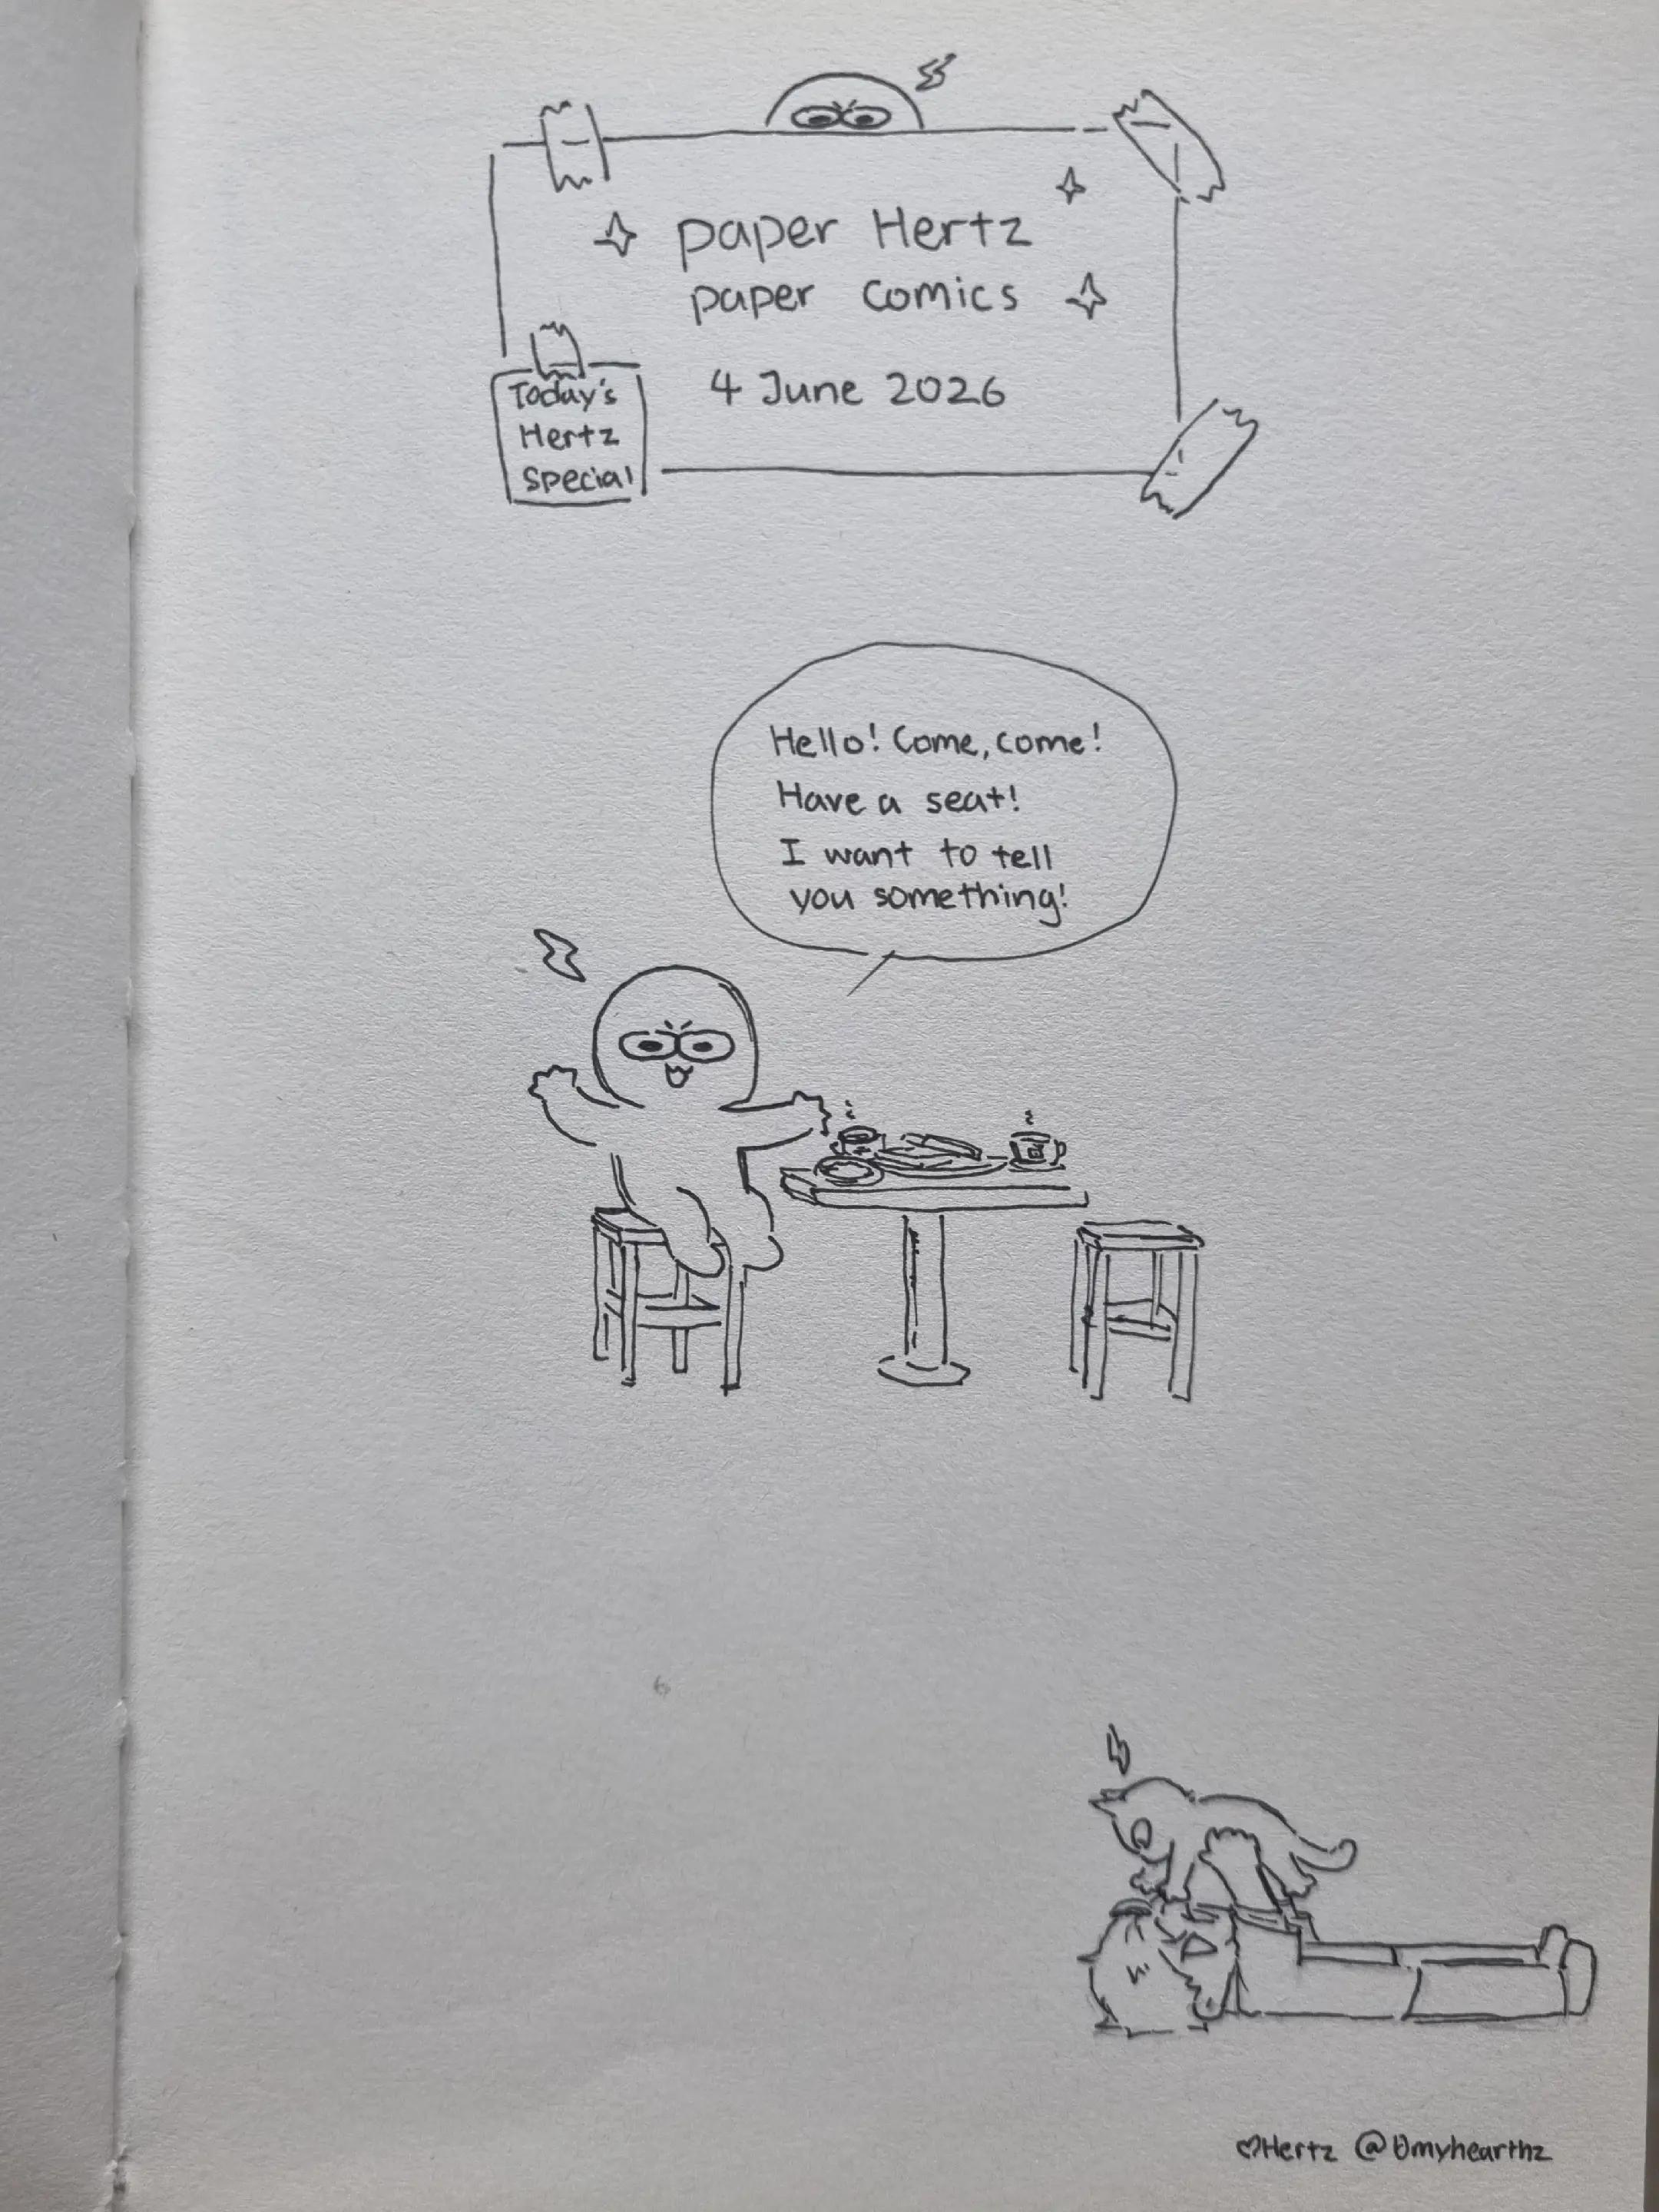 paper Hertz
paper comics
4 June 2026
Today's
Hertz
special
Hello! Come, come!
Have a seat!
I want to tell
you something!
♡Hertz @